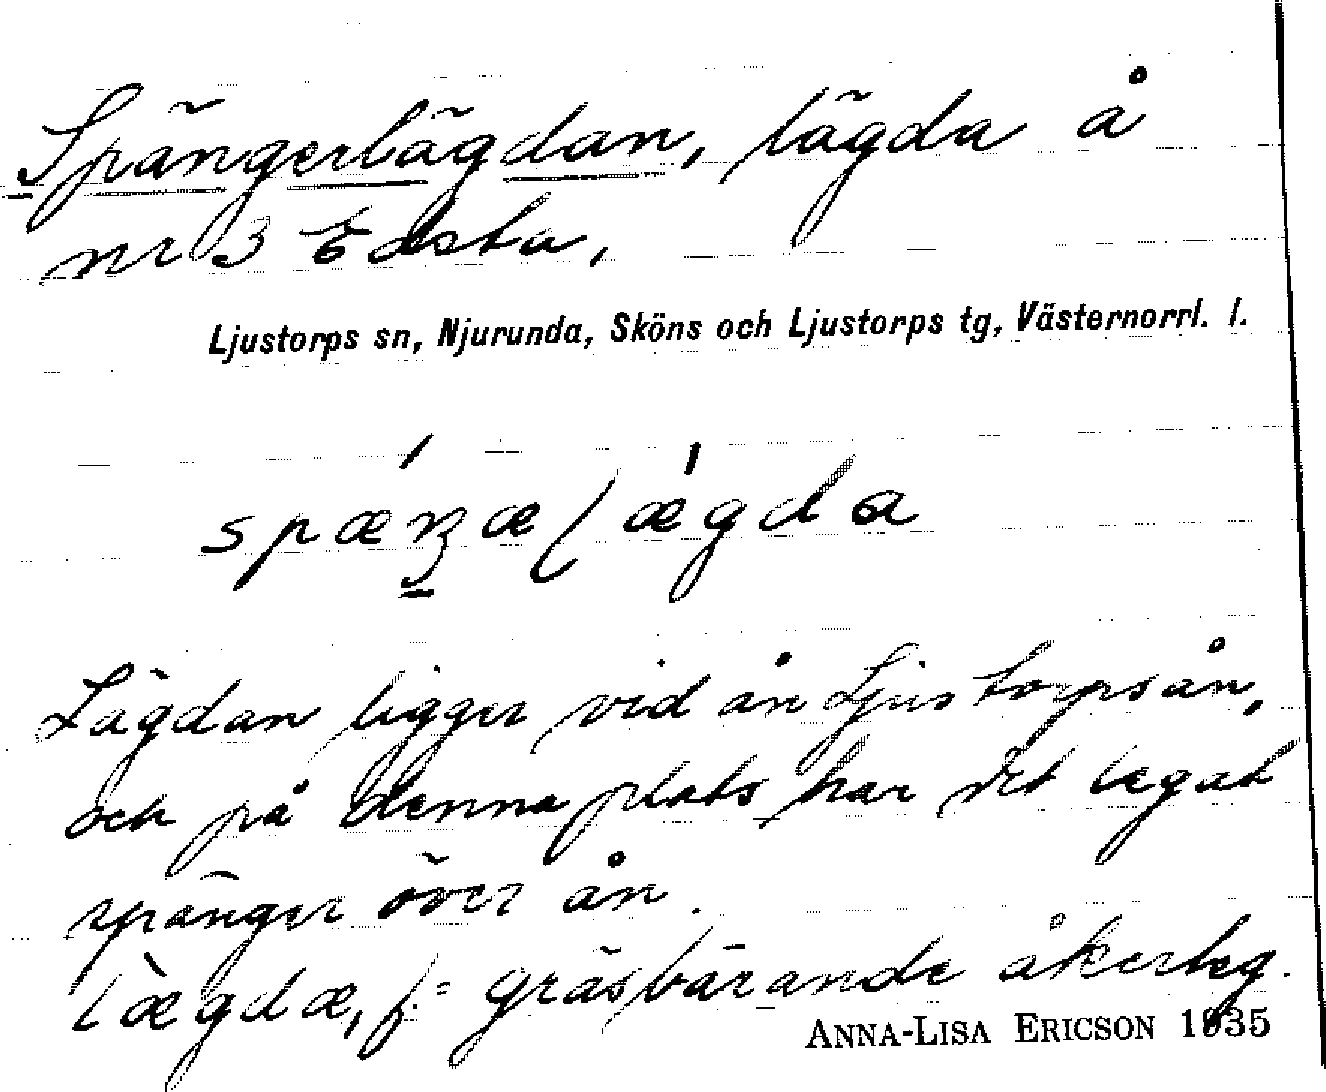 Spångerlägdan, lägda å
nr 3 Edsta,
Ljustorps sn, Njurunda, Sköns och Ljustorps tg, Västernorrl. l.
Lägdan ligger vid ån Ljustorpsån,
och på denna plats har det legat
spänger över ån.
lægdæ, f. = gräsbärande åkerteg.
ANNA-LISA ERICSON 1935